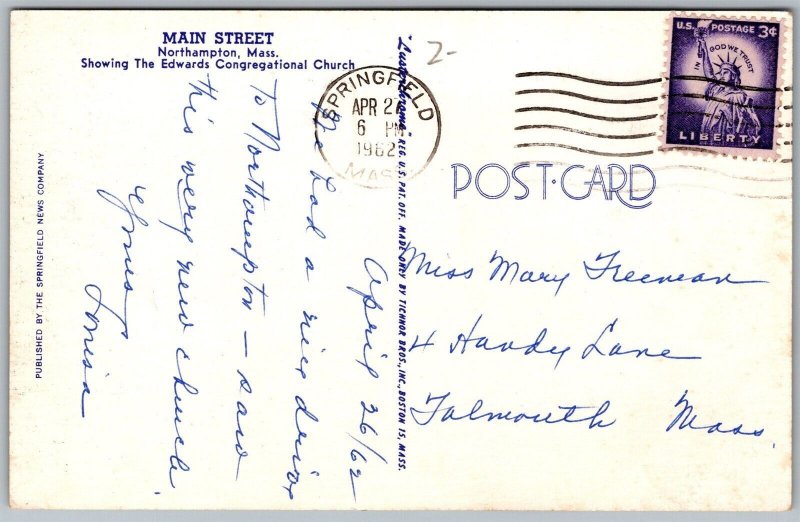 MAIN STREET
Northampton, Mass.
Showing The Edwards Congregational Church
2-
SPRINGFIELD
APR 27
6 PM
1962
MASS.
U.S. POSTAGE 3¢
IN GOD WE TRUST
LIBERTY
POST·CARD
"Lusterchrome" REG. U.S. PAT. OFF. MADE ONLY BY TICHNOR BROS., INC., BOSTON 15, MASS.
PUBLISHED BY THE SPRINGFIELD NEWS COMPANY
April 26/62
We had a nice drive
To Northampton — saw
this very new church.
Yours,
Louisa
Miss Mary Freeman
4 Handy Lane
Falmouth Mass.